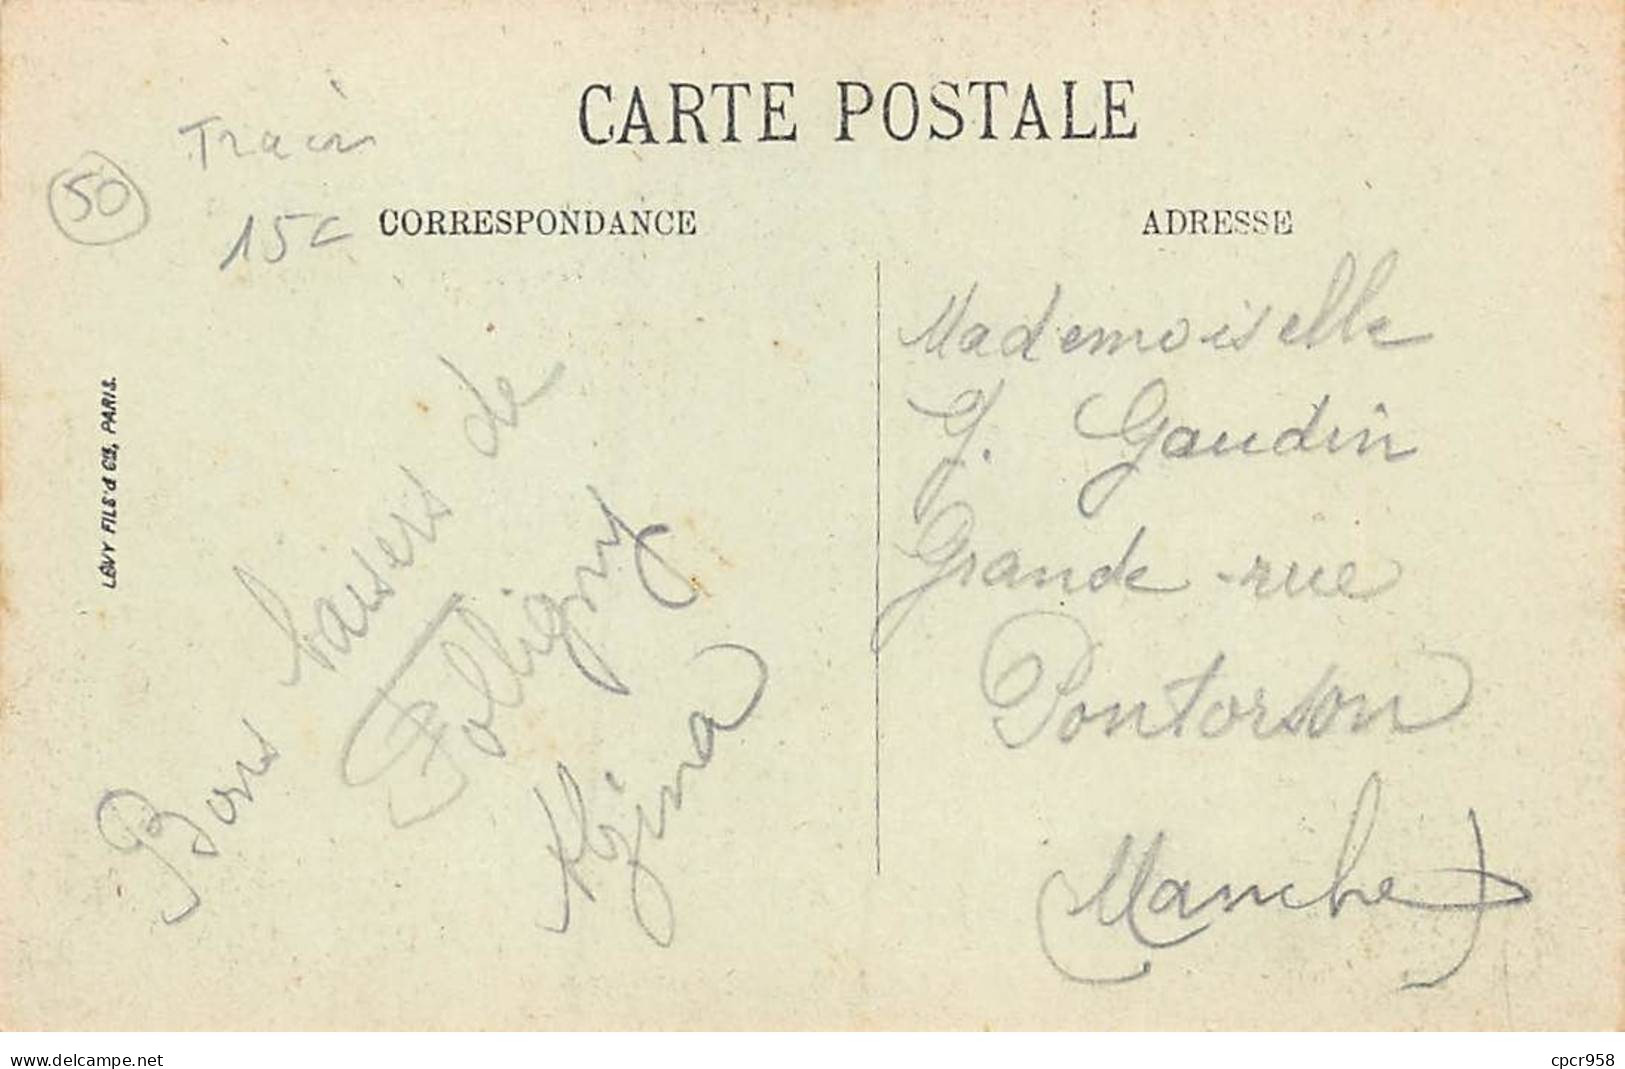 CARTE POSTALE
Train
50
15c
CORRESPONDANCE
ADRESSE
Bons baisers de
Folligny
Mademoiselle
G. Gaudin
Grande-rue
Pontorson
(Manche)
LÉVY FILS & Cie, PARIS.
www.delcampe.net
cpcr958